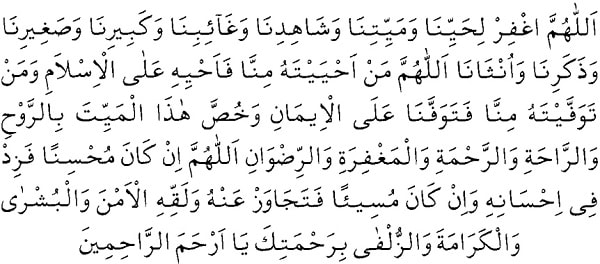 اَللّٰهُمَّ اغْفِرْ لِحَيِّنَا وَمَيِّتِنَا وَشَاهِدِنَا وَغَآئِبِنَا وَكَبِيرِنَا وَصَغِيرِنَا
وَذَكَرِنَا وَاُنْثَانَا اَللّٰهُمَّ مَنْ اَحْيَيْتَهُ مِنَّا فَاَحْيِهِ عَلٰى الْاِسْلَامِ وَمَنْ
تَوَفَّيْتَهُ مِنَّا فَتَوَفَّنَا عَلَى الْاِيمَانِ وَخُصَّ هٰذَا الْمَيِّتَ بِالرَّوْحِ
وَالرَّاحَةِ وَالرَّحْمَةِ وَالْمَغْفِرَةِ وَالرِّضْوَانِ اَللّٰهُمَّ اِنْ كَانَ مُحْسِنًا فَزِدْ
فِى اِحْسَانِهِ وَاِنْ كَانَ مُسِيئًا فَتَجَاوَزْ عَنْهُ وَلَقِّهِ الْاَمْنَ وَالْبُشْرٰى
وَالْكَرَامَةَ وَالزُّلْفٰى بِرَحْمَتِكَ يَا اَرْحَمَ الرَّاحِمِينَ